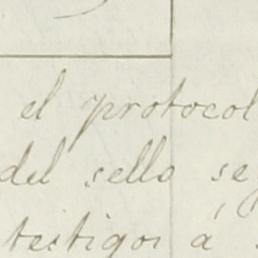 el protocol
del sello se
testigos á